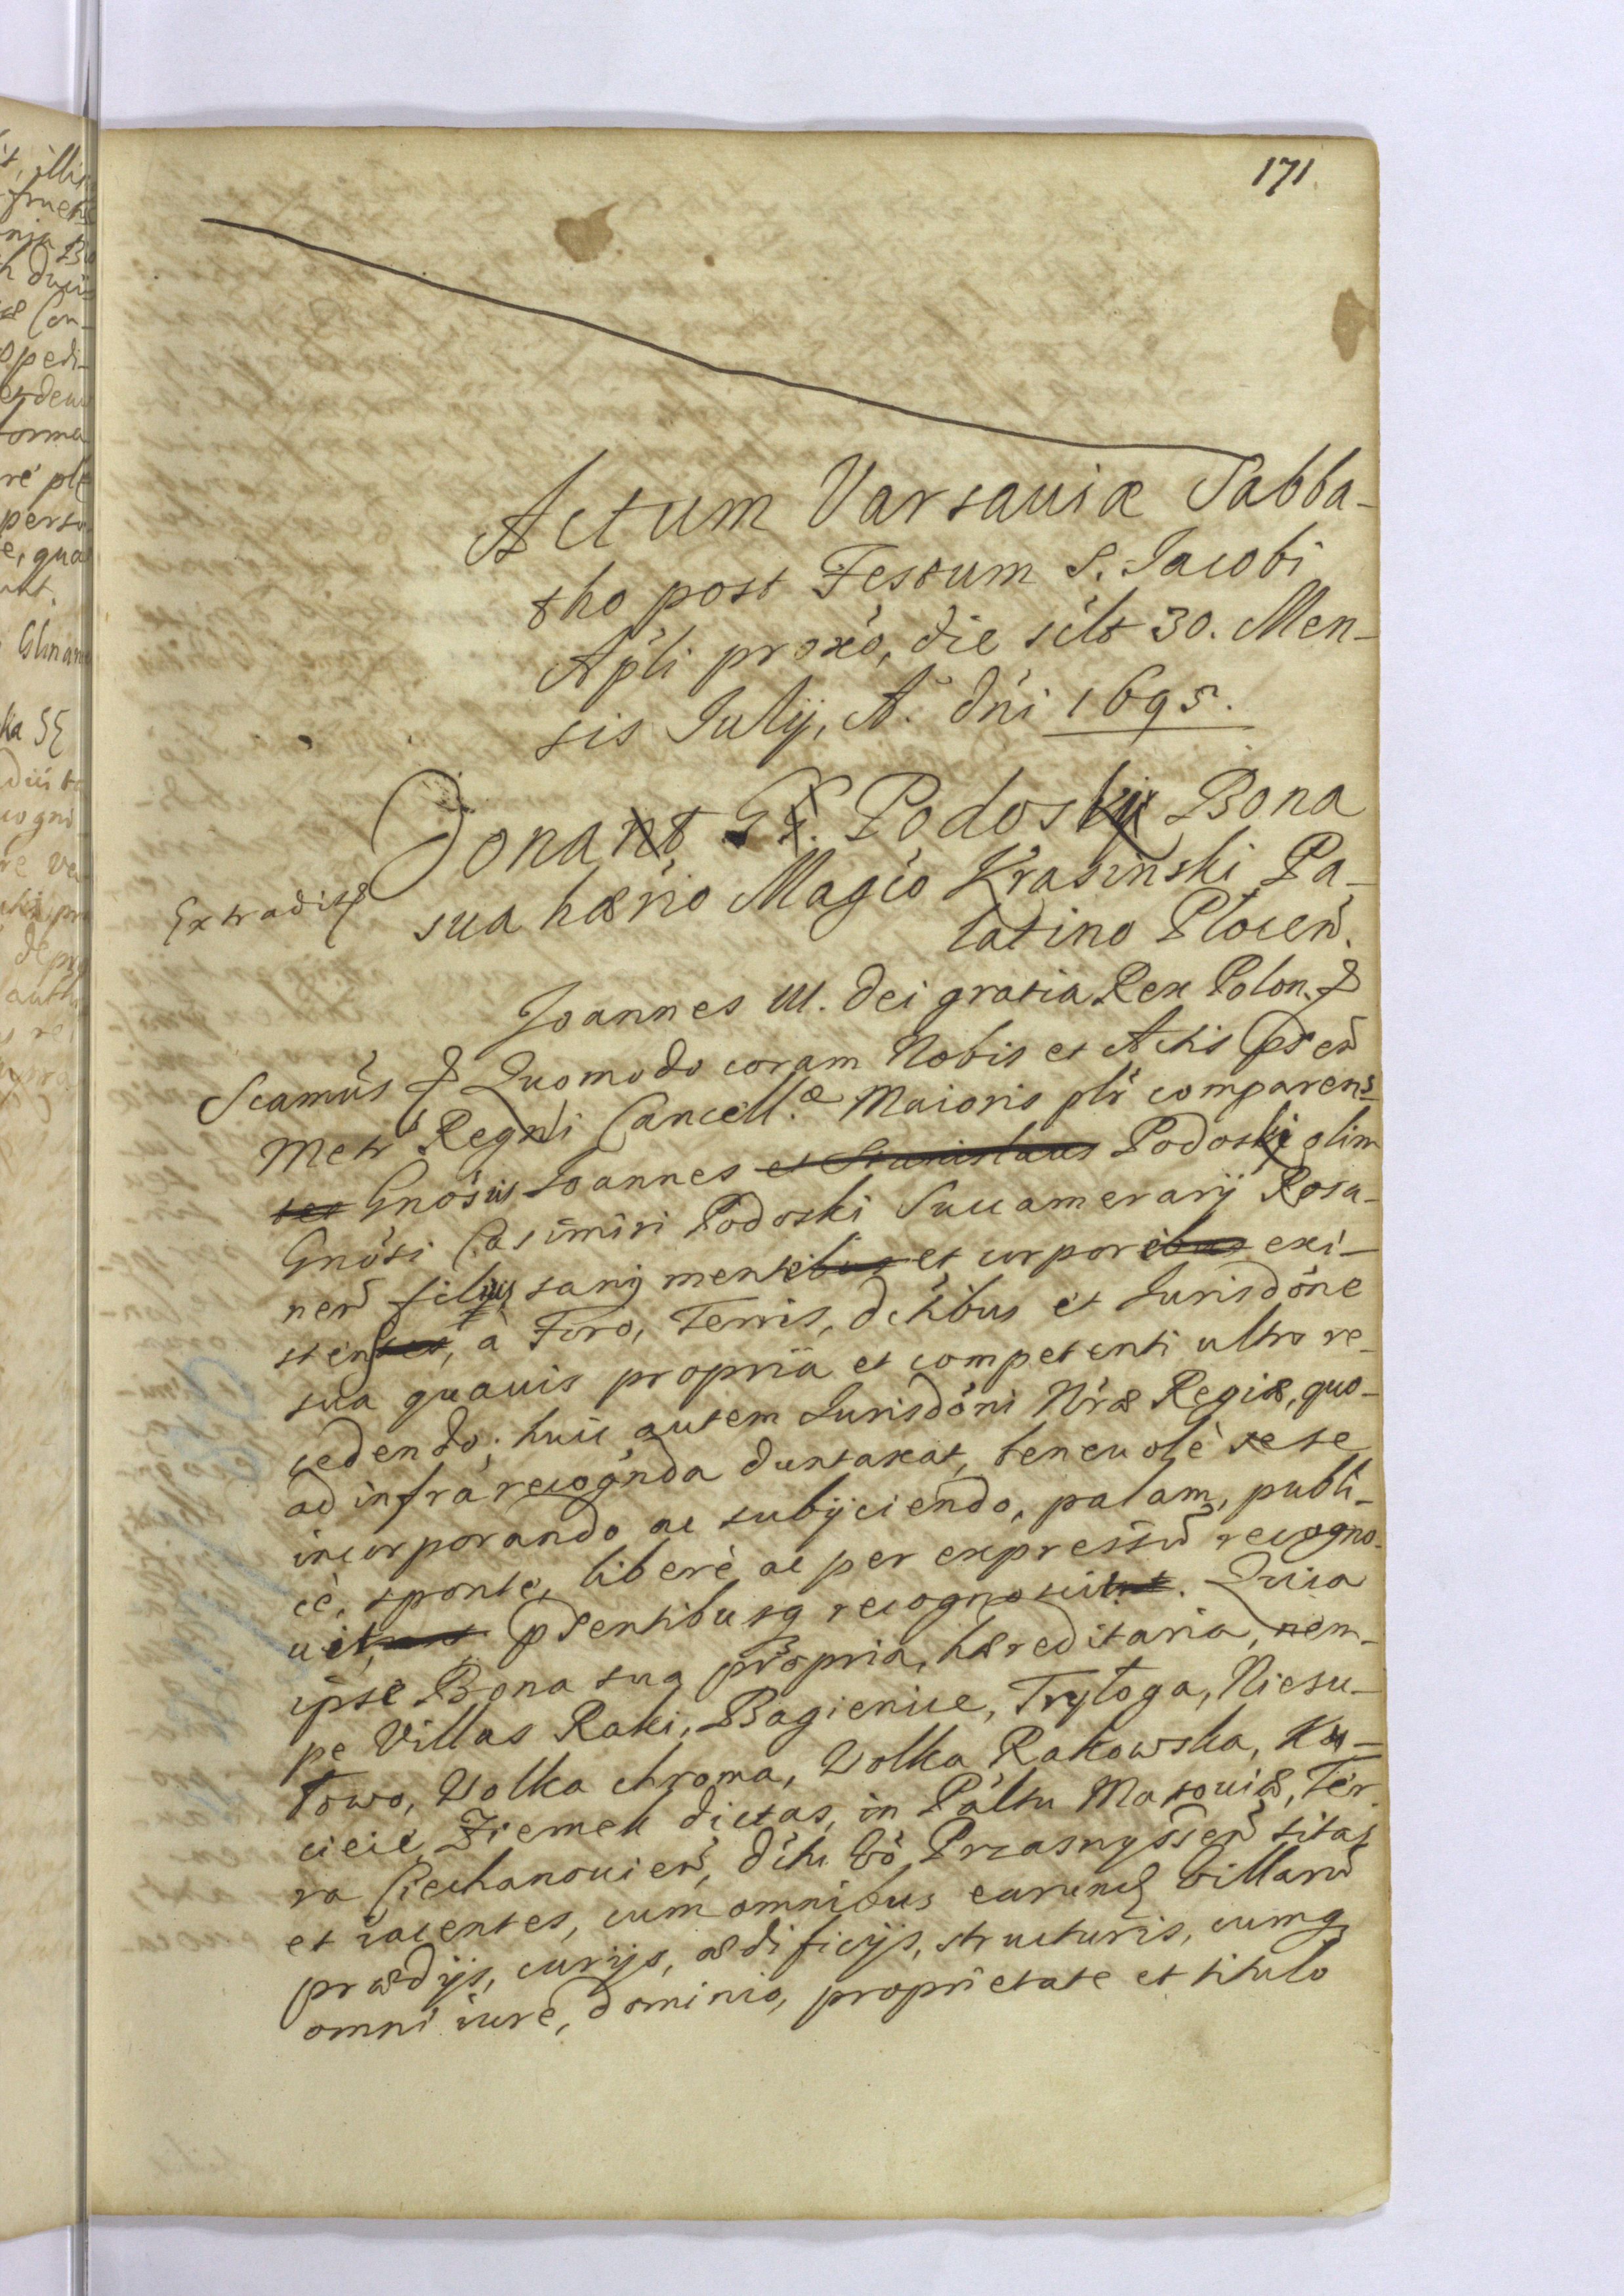 171
Actum Varsauiæ Sabba-
tho post Festum S. Jacobi
Apli proxo, die silt 30. Men-
sis Julij, A. dni 1695.
Donant GG. Podoskij Bona
sua hærio Magco Krasinski Pa-
latino Płocen.
Extradit
Joannes III. Dei gratia Rex Polon. &
Scamus & Quomodo coram Nobis et Actis psen
Metr Regni Cancell.æ Maioris plr comparens
Gnosus Joannes et Stanislaus Podoski olim
Gnosi Casimiri Podoski Succamerarij Rosa-
nen filius sanus mentibus et corporibus exi-
stens, à Foro, Terris, dctibus et Jurisdone
sua quauis propria et competenti ultro re-
cedendo; huic autem Jurisdoni Nræ Regiæ, quo-
ad infra recognda duntaxat, beneuolè sese
incorporando ac subijciendo, palam, publi-
cè, sponte, liberè ac per expressu recogno-
uit, psentibusq recognoscit. Quia
ipse Bona sua propria, hæreditaria, nem-
pe Villas Raki, Bagienice, Trętoga, Niesu-
łowo, Wolka chroma, Wolka Rakowska, Ko-
cieie Ziemek dictas, in Paltu Masouiæ, Ter-
ra Ciechanouien, dctu vo Przasnyssen sitas
et iacentes, cum omnibus earund villaru
prædijs, curijs, ædificijs, structuris, cumq
omni iure, dominio, proprietate et titulo